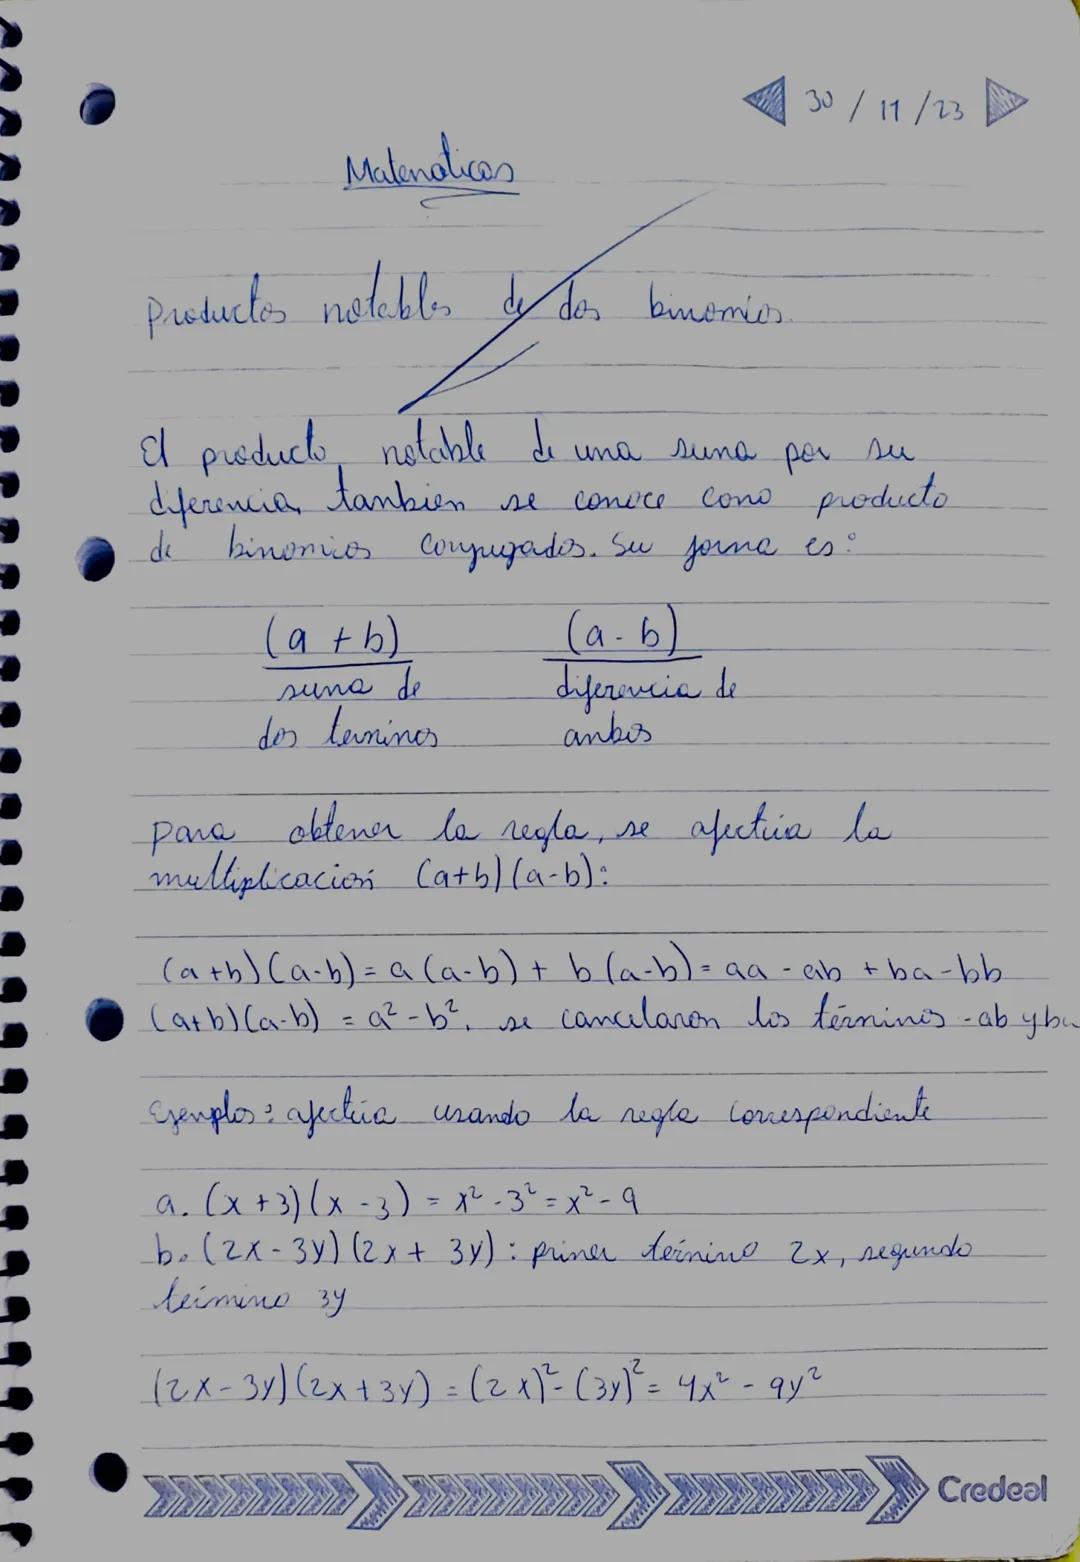 30 / 11 / 23
Matenaticas
Productos notables de dos binomios.
El producto notable de una suna por su
diferencia, tanbien se conoce cono producto
de binomios conjugados. Su forna es:
(a + b) (a - b)
suna de diferencia de
dos terninos anbos
para obtener la regla, se afectúa la
multiplicación (a+b)(a-b):
(a+b)(a-b) = a(a-b) + b(a-b) = aa - ab + ba - bb
(a+b)(a-b) = a² - b², se cancelaron los términos -ab y ba
Ejenplos: afectúa usando la regla correspondiente
a. (x+3)(x-3) = x² - 3² = x² - 9
b. (2x - 3y)(2x + 3y) : priner término 2x, segundo
término 3y
(2x - 3y)(2x + 3y) = (2x)² - (3y)² = 4x² - 9y²
Credeal